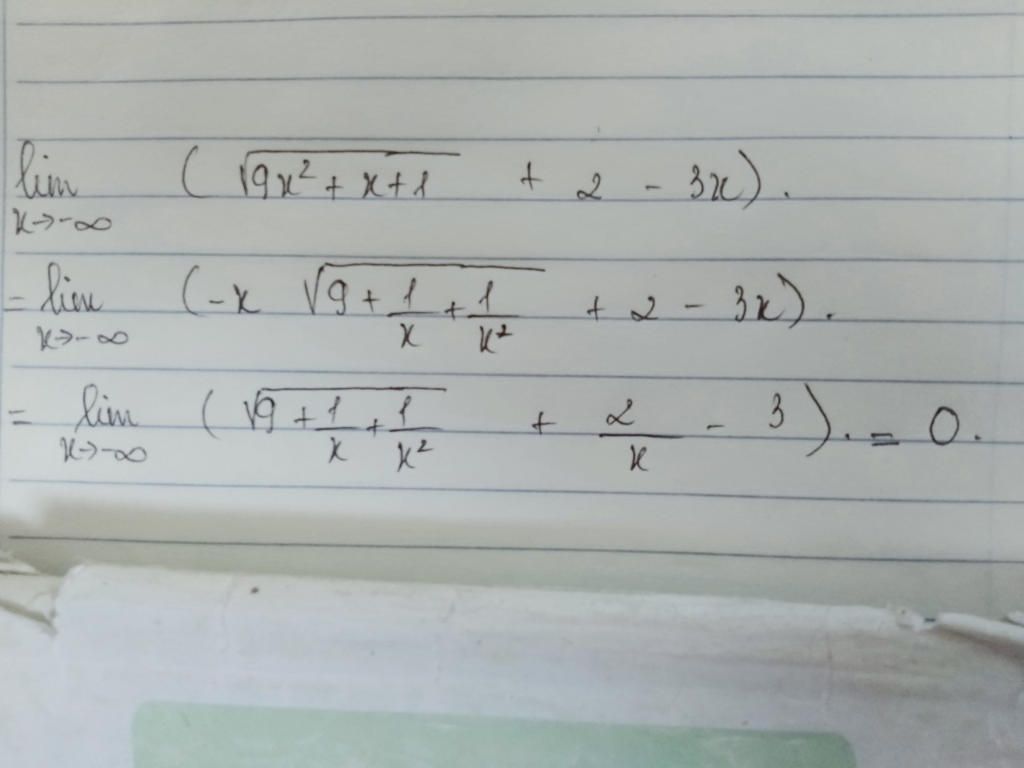 lim x→-∞ ( √(9x² + x + 1) + 2 - 3x).
= lim x→-∞ (-x √(9 + 1/x + 1/x²) + 2 - 3x).
= lim x→-∞ ( √(9 + 1/x + 1/x²) + 2/x - 3). = 0.